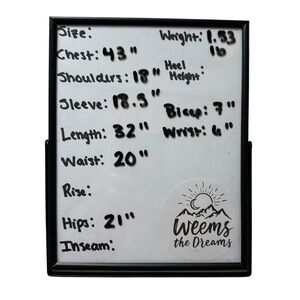 Size:
Weight: 1.53 lb
Chest: 43"
Heel Height:
Shoulders: 18"
Sleeve: 18.5"
Bicep: 7"
Length: 32"
Wrist: 6"
Waist: 20"
Rise:
Hips: 21"
Inseam:
Weems
the Dreams